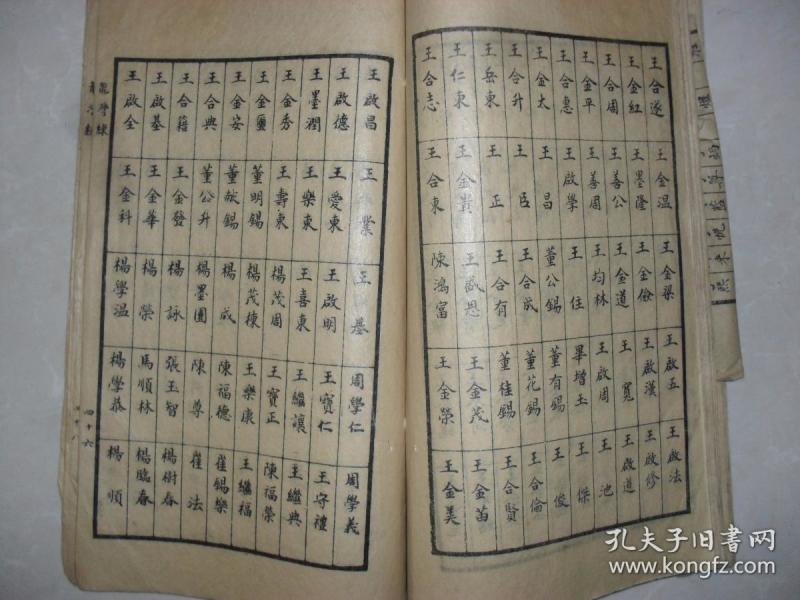 王合遂 王金温 王金梁 王啟五 王啟法
王金紅 王墨隆 王金儉 王啟漢 王啟修
王合周 王善公 王金道 王寬 王啟道
王金平 王善周 王均林 王啟周 王池
王合惠 王啟學 王住 畢增玉 王傑
王金太 王昌 董公錫 董有錫 王俊
王合升 王臣 王合成 董花錫 王合倫
王岳東 王正 王合有 董佳錫 王合賢
王仁東 王金貴 王恩 王金茂 王金苗
王合志 王合東 陳鴻富 王金榮 王金美
王啟昌 王業 王基 周學仁 周學義
王啟德 王愛東 王啟明 王寶仁 王守禮
王墨潤 王樂東 王喜東 王繼讓 王繼典
王金秀 王壽東 楊茂周 王寶正 陳福榮
王金璽 董明錫 楊茂棟 王樂康 王繼福
王金安 董獻錫 楊成 陳福德 崔錫樂
王合典 董公升 楊墨圃 陳尊 崔法
王合籍 王金發 楊詠 張玉智 楊樹春
王啟基 王金華 楊榮 馬順林 楊臨春
王啟全 王金科 楊學温 楊學恭 楊順
四十六
孔夫子旧書网
www.kongfz.com